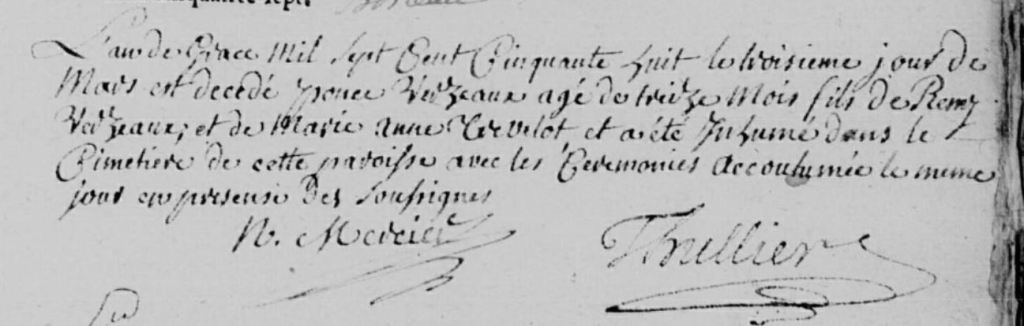 L'an de Grace Mil Sept Cent Cinquante huit le troisieme jour de
Mars est decedé ponce Verzeaux agé de treize Mois fils de Remy
Verzeaux, et de Marie Anne Crevelot et a été Inhumé dans le
Cimetiere de cette paroisse avec les Ceremonies accoutumée le meme
jour en presence des Soussignes
N. Mercier Thullier